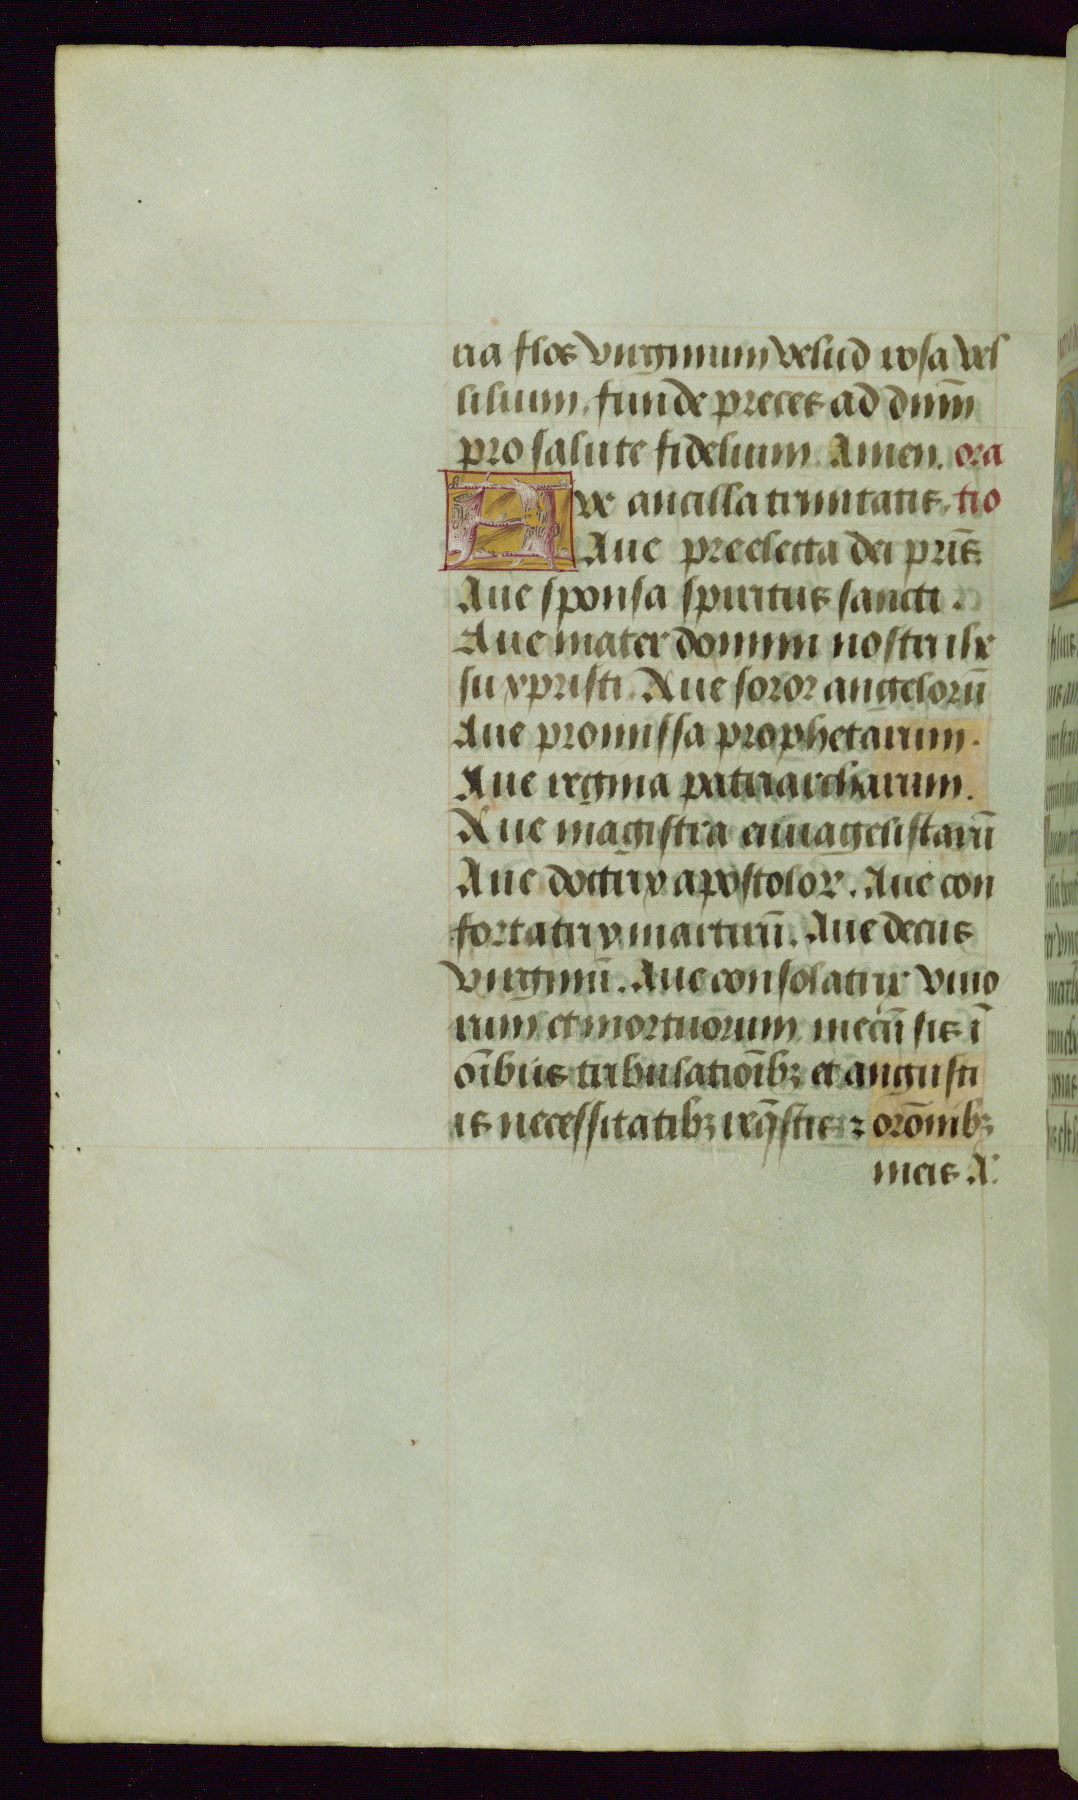 ria flos virginum velud rosa vel
lilium. funde preces ad dnm̄
pro salute fidelium. Amen. ora
Ave ancilla trinitatis. tio
Aue preelecta dei pr̄is.
Aue sponsa spiritus sancti.
Aue mater domini nostri ihe
su xpristi. Aue soror angelorū
Aue promissa prophetarum.
Aue regina patriarcharum.
Aue magistra euuagelistarū
Aue doctrix apostoloꝝ. Aue con
fortatrix martirū. Aue decus
virginū. Aue consolatrix viuo
rum et mortuorum mecū sis ī
oībus tribulatiōibꝫ et angusti
is necessitatibꝫ req̄stis ⁊ orōnibꝫ
meis A.